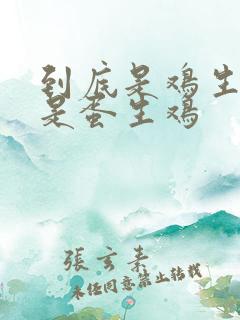 到底是鸡生
是蛋生鸡
張玄素
未经同意禁止转载